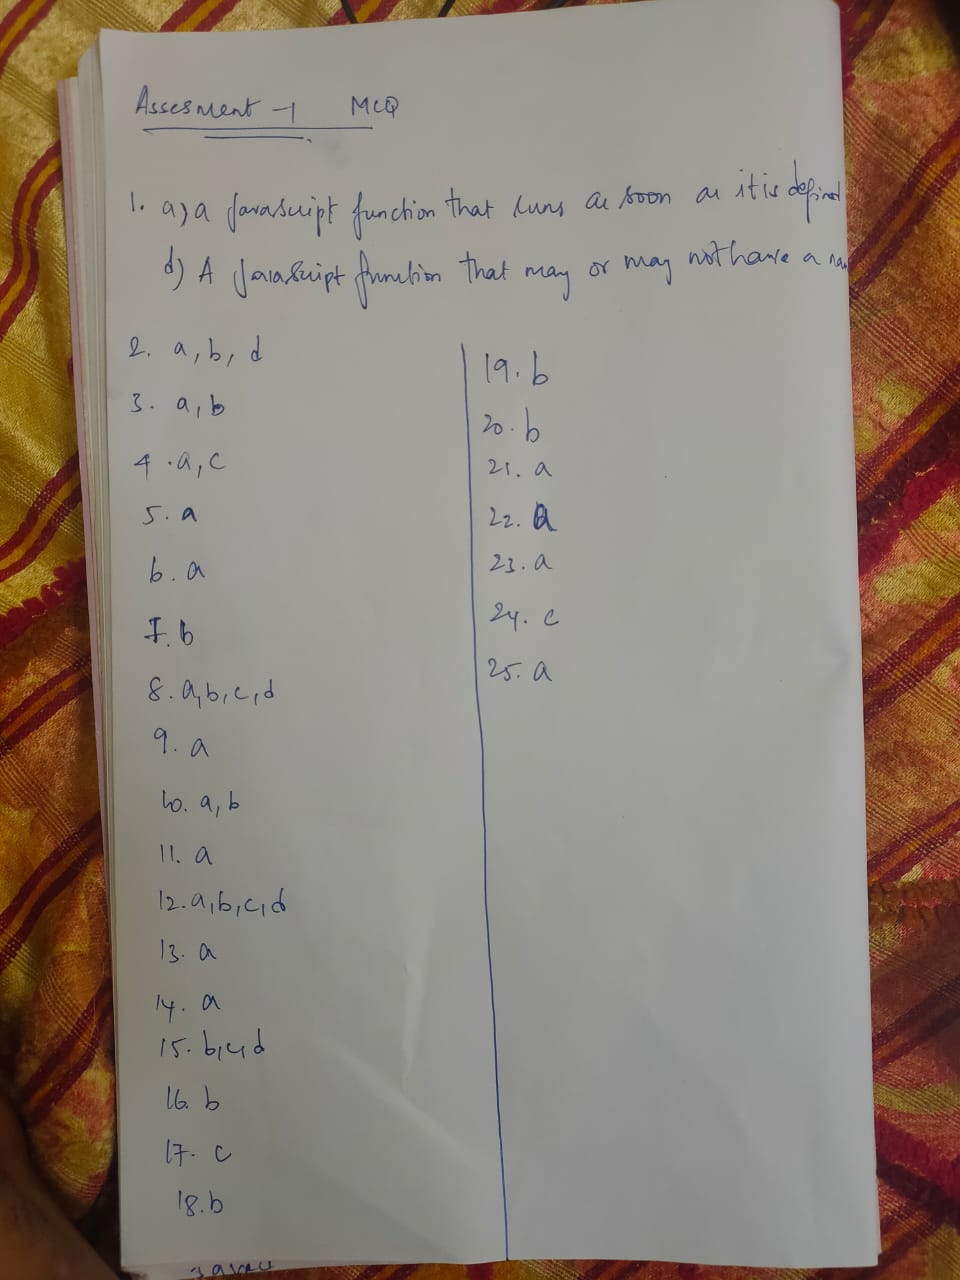 Assesment -1 MCQ
1. a) a Javascript function that runs as soon as it is defined
d) A JavaScript function that may or may not have a
2. a, b, d
3. a, b
4. a, c
5. a
6. a
7. b
8. a, b, c, d
9. a
10. a, b
11. a
12. a, b, c, d
13. a
14. a
15. b, c, d
16. b
17. c
18. b
19. b
20. b
21. a
22. a
23. a
24. c
25. a